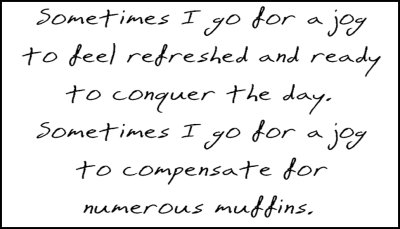 Sometimes I go for a jog
to feel refreshed and ready
to conquer the day.
Sometimes I go for a jog
to compensate for
numerous muffins.